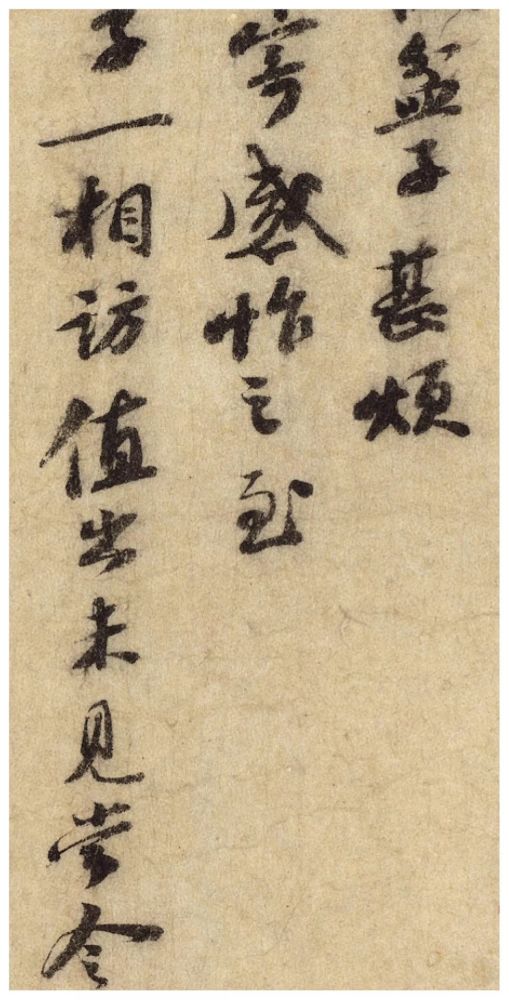 盆子甚煩
寄感怍之至
子一相訪值出未見當令